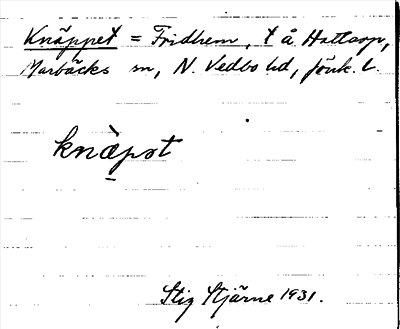 Knäppet = Fridhem, t å Hattarp,
Marbäcks sn, N. Vedbo hd, Jönk. l.
knäpət
Stig Stjärne 1931.